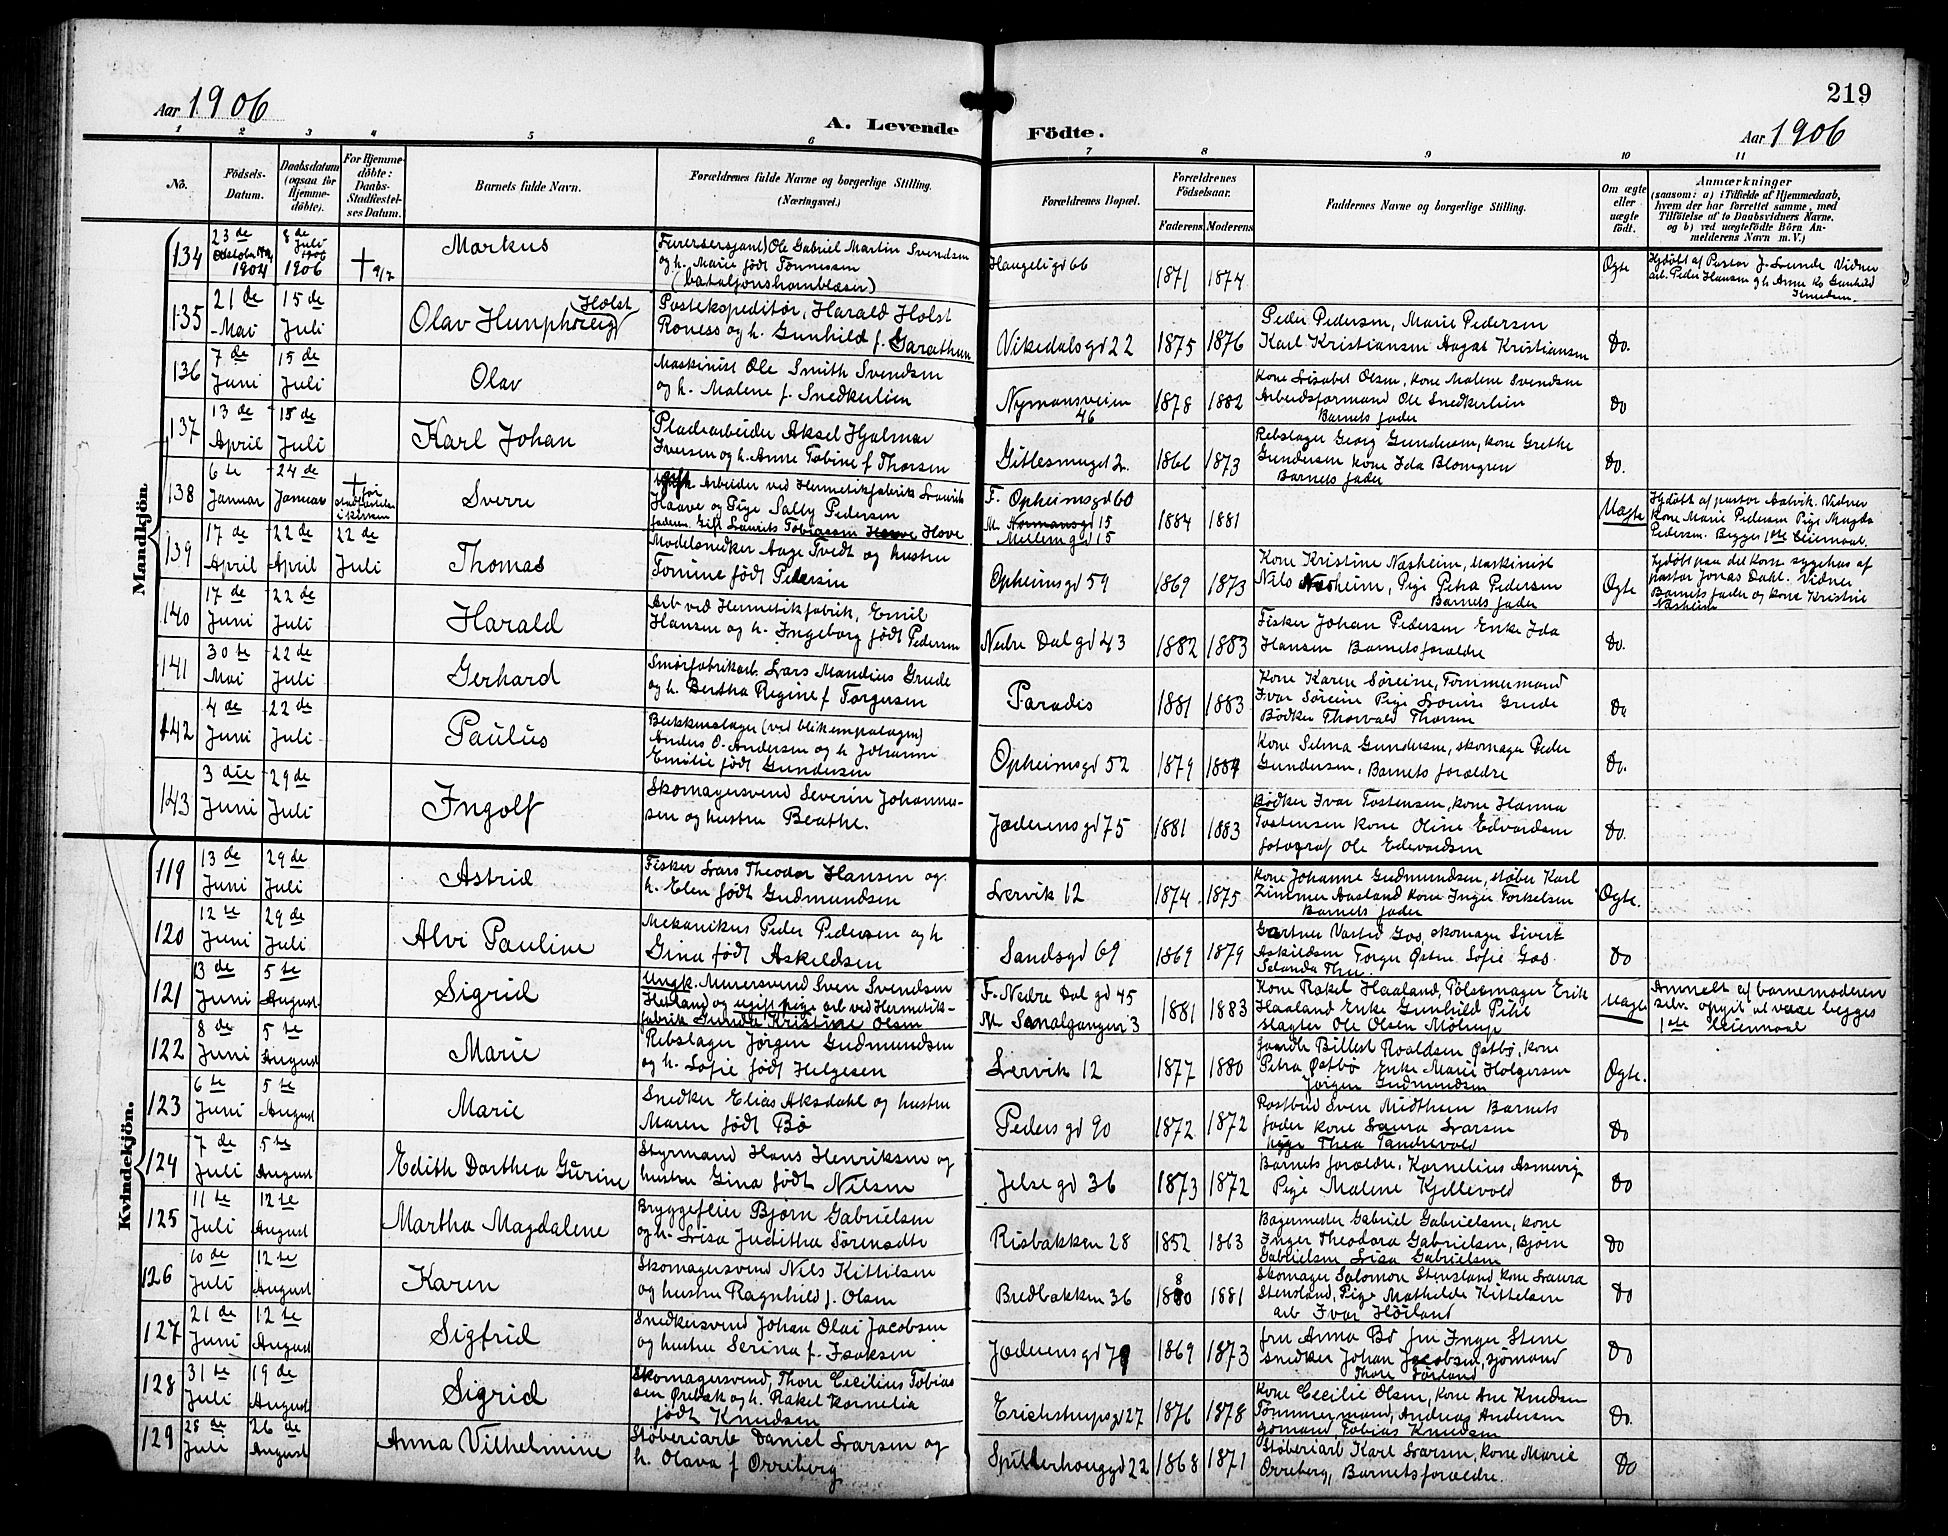 219
Aar 1906
A. Levende
Födte.
Aar 1906
1 2 3 4 5 6 7 8 9 10 11
No.
Födsels-
Datum.
Daabsdatum
(ogsaa for
Hjemme-
döbte).
For Hjemme-
döbte:
Daabs-
Stadfæstel-
ses Datum.
Barnets fulde Navn.
Forældrenes fulde Navne og borgerlige Stilling.
(Næringsvei.)
Forældrenes Bopæl.
Forældrenes
Födselsaar.
Faderens Moderens
Faddernes Navne og borgerlige Stilling.
Om ægte
eller
uægte
födt.
Anmærkninger
(saasom: a) i Tilfælde af Hjemmedaab,
hvem der har forrettet samme, med
Tilföielse af to Daabsvidners Navne.
og b) ved uægtefödte Börn An-
melderens Navn m. V.)
Mandkjön
134
23 de
1904
8 de
Juli
1906
† 9/7
Markus
Ole Gabriel Martin Svendsen
og h. Marie født Tönnessen
(bataljonshornblæser)
Haugeligd 66
1871 1874
Ægte
Hjdöbt af Pastor J. Lunde Vidner
arb. Peder Hansen og h. Anne Gunhild
Knudsen
135
21 de
Mai
15 de
Juli
Holst
Olav
Postekspeditør, Harald Holst
Roness og h. Gunhild f.
Vikedalsgd 22
1875 1876
Peder Pedersen, Marie Pedersen
Karl Kristiansen Aagot Kristiansen
Do.
136
7 de
Juni
15 de
Juli
Olav
Maskinist Ole Smith Svendsen
og h. Malene f. Snedkerlien
Nymansveien
46
1878 1882
Kone Lisabet Olsen, kone Malene Svendsen
Arbeidsformand Ole Snedkerlien
Barnets fader
Do
137
13 de
April
15 de
Juli
Karl Johan
Pladearbeider Aksel Hjalmar
Iversen og h. Anne Tobine f Thorsen
1866 1873
Rebslager Georg Gundersen, kone Grethe
Gundersen kone Ida Blomgren
Barnets fader
Do.
138
6 te
Januar
24 de
Januar
† før
i kirken
Sverre
Arbeider ved Hermetikfabrik Lauritz
Haave og Pige Sally Pedersen
F. Opheimsgd 60
M. Normansgd 15
1884 1881
Uægte
Hjdöbt af pastor Aalvik. Vidner
Kone Marie Pedersen Pige Magda
Pedersen. Begges 1ste Leiemaal.
139
17 de
April
22 de
April
22 de
Juli
Thomas
Modelsnedker Aage Tvedt og hustru
Tomine født Pedersen
Opheimsgd 59
1869 1873
Kone Kristine Næsheim, Maskinist
Nils Næsheim, Pige Petra Pedersen
Barnets fader
Ægte
Hjdöbt paa det kom sygehus af
pastor Jonas Dahl. Vidner
Barnets fader og kone Kristine
Næsheim
140
17 de
Juni
22 de
Juli
Harald
Arb ved Hermetikfabrik, Emil
Hansen og h. Ingeborg født Pedersen
Nedre Dal gd 43
1882 1883
Fisker Johan Pedersen Enke Ida
Hansen Barnets forældre
Do.
141
30 te
Mai
22 de
Juli
Gerhard
Smörfabrikarb. Lars Mandius Grude
og h. Bertha Regine f Torgersen
Paradis
1881 1883
Kone Karen Søreine, Tømmermand
Ivar Søreine Pige Lovise Grude
Bödker Thorvald Thorsen
Do
142
4 de
Juni
22 de
Juli
Paulus
Blikkenslager
Anders O. Andersen og h Johanne
Emilie født Gundersen
Opheimsgd 52
1879 1884
Kone Selma Gundersen, skomager Peder
Gundersen, Barnets forældre
Do.
143
3 die
Juni
29 de
Juli
Ingolf
Skomagersvend Severin Johannes-
sen og hustru Beathe.
Jæderensgd 75
1881 1883
Bødker Ivar Tostensen, kone Hanna
Tostensen kone Oline Edvardsen
fotograf Ole Edvardsen
Do.
Kvindekjön.
119
13 de
Juni
29 de
Juli
Astrid
Fisker Lars Theodor Hansen og
h. Elen født Gudmundsen
Lervik 12
1874 1875
Kone Johanne Gudmundsen, støber Karl
Zimmer Aasland kone Inger Torkelsen
Barnets fader
Ægte.
120
12 te
Juni
29 de
Juli
Alvi Pauline
Mekanikus Peder Pedersen og h
Gina født Askildsen
Sandsgd 69
1869 1879
Gartner
Askildsen Torger Østen Sofie
Do
121
13 de
Juni
5 te
August
Sigrid
Ungk. Murersvend Sven Svendsen
Hetland og ugift pige arb ved Hermetik-
fabrik Gunda Kristine Olsen
F. Nedre Dal gd 45
M. 3
1881 1883
Kone Rakel Haaland, Pølsemager Erik
Haaland Enke Gunhild Pihl
slagter Ole Olsen Møltrup
Uægte
Anmeldt af barnemoderen
selv. opgit at være begges
1ste Leiemaal
122
8 de
Juni
5 te
August
Marie
Rebslager Jörgen Gudmundsen
og h. Sofie født Helgesen
Lervik 12
1877 1880
Roaldsen Østbø, kone
Petra Østbø Enke Marie Holgersen
Jørgen Gudmundsen
Ægte.
123
6 te
Juni
5 te
August
Marie
Snedker Elias Aksdahl og hustru
Maren født Bø
Pedersgd 90
1872 1872
Postbud Sven Midthem Barnets
fader kone Laura Larsen
Pige Thea Tandrevold
Do
124
7 de
Juli
5 te
August
Edith Dorthea Gurine
Styrmand Hans Henriksen og
hustru Gina født Nilsen
Jelsegd 36
1873 1872
Barnets forældre, Kornelius
Pige Malene Kjellevold
Do
125
11 te
Juli
12 te
August
Martha Magdalene
Bryggefeier Bjørn Gabrielsen
og h. Lisa Juditha Sørensdtr
Risbakken 28
1852 1863
Bagermester Gabriel Gabrielsen, kone
Inger Theodora Gabrielsen, Bjørn
Gabrielsen Lisa Gabrielsen
Do
126
10 de
Juli
12 te
August
Karen
Skomagersvend Nils Kittilsen
og hustru Ragnhild f. Olsen
Bredbakken 36
1880 1881
Skomager Salomon Stensland, kone Laura
Stensland, Pige Mathilde Kittelsen
arb Ivar Höiland
Do
127
21 de
Juni
12 te
August
Sigfrid
Snedkersvend Johan Olai Jacobsen
og hustru Serina f. Isaksen
Jæderensgd 79
1869 1873
fru Anna Bø fru Inger Stene
snedker Johan Jacobsen, sjømand
Thore Førland
Do
128
31 te
Juli
19 de
August
Sigrid
Skomagersvend, Thore Cecilius Tobias
sen og h. Rakel Kornelia
født Knudsen
Erichstrupsgd 27
1876 1878
Kone Cecilie Olsen, kone Ane Knudsen
Tømmermand, Andreas Andersen
sjømand, Tobias Knudsen
Do.
129
28 de
Juli
26 de
August
Anna Vilhelmine
Støberiarb Daniel Larsen og
h. Olava f Orreberg
22
1868 1871
Støberiarb Karl Larsen, kone Marie
Orreberg, Barnets forældre.
Do